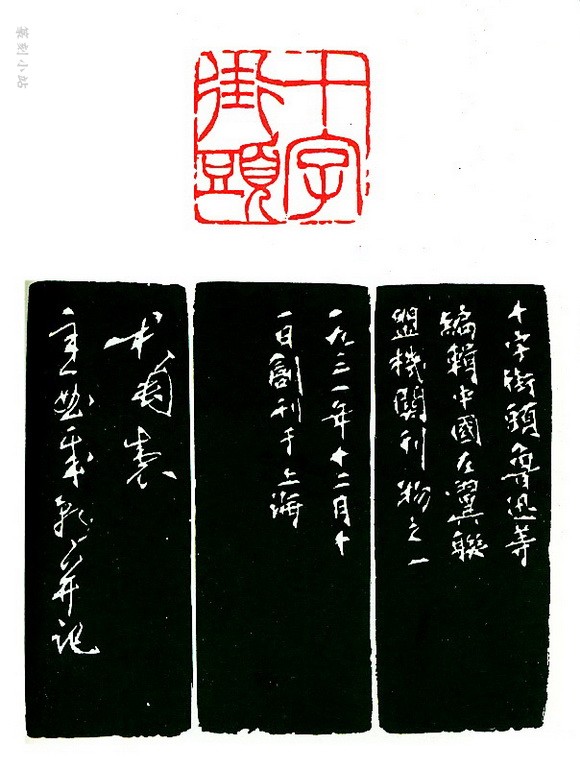 篆刻小站
十字
街頭
十字街頭魯迅等
編輯中國左翼聯
盟機關刊物之一
一九三一年十二月十
一日創刊于上海
製
并記